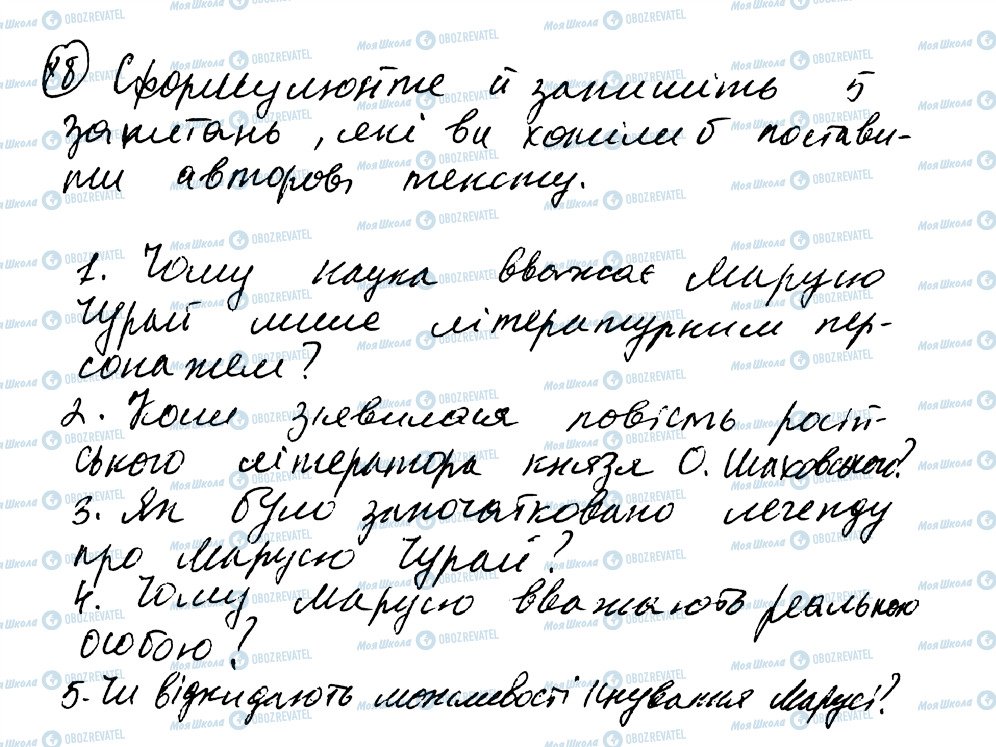 18 Сформулюйте й запишіть 5
запитань, які ви хотіли б постави-
ти авторові тексту.
1. Чому наука вважає Марусю
Чурай лише літературним пер-
сонажем?
2. Коли з'явилася повість росій-
ського літератора князя О. Шаховського?
3. Як було започатковано легенду
про Марусю Чурай?
4. Чому Марусю вважають реальною
особою?
5. Чи відкидають можливості існування Марусі?